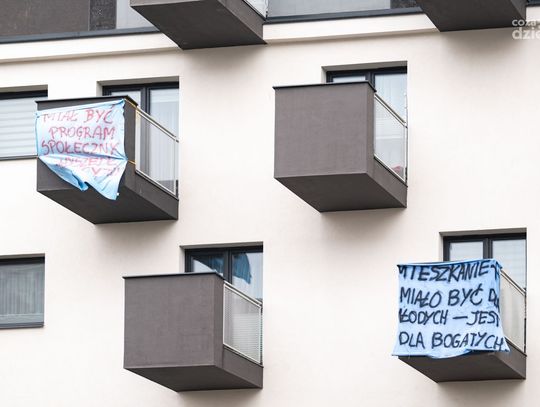 MIAŁ BYĆ
PROGRAM
SPOŁECZNY
MIESZKANIE
MIAŁO BYĆ D
MŁODYCH — JEST
DLA BOGATYCH
coza
dzień